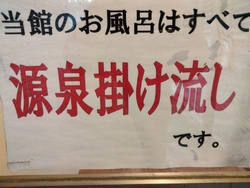 当館のお風呂はすべて
源泉掛け流し
です。